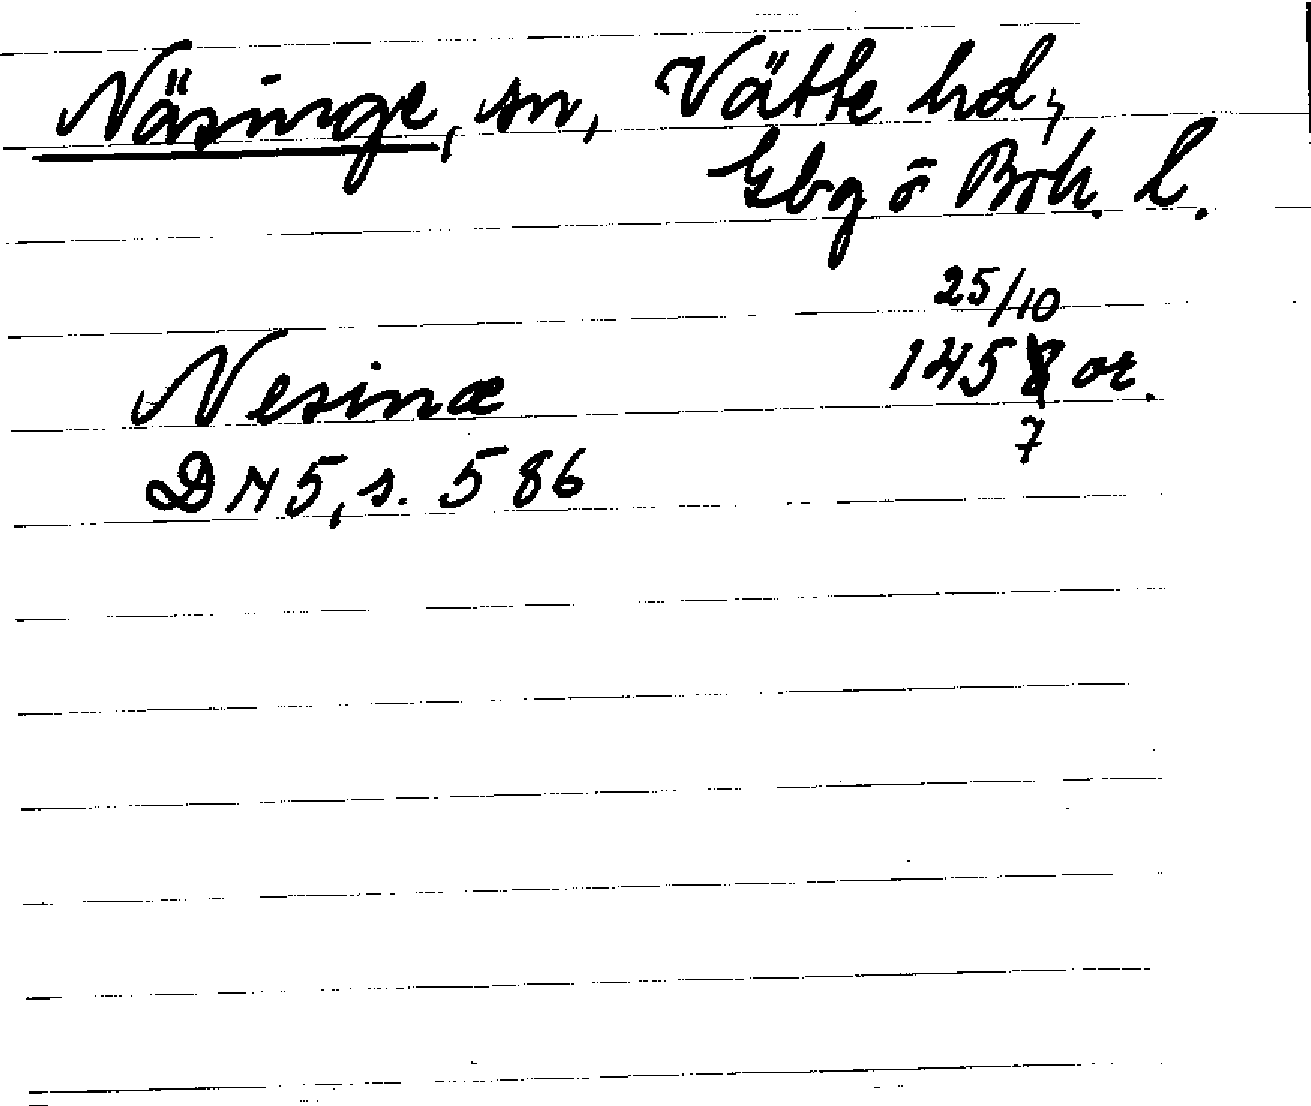 Näsinge, sn, Vätte hd,
Gbg o Boh. l.
25/10
Nesinæ 1458 or.
7
DN 5, s. 586